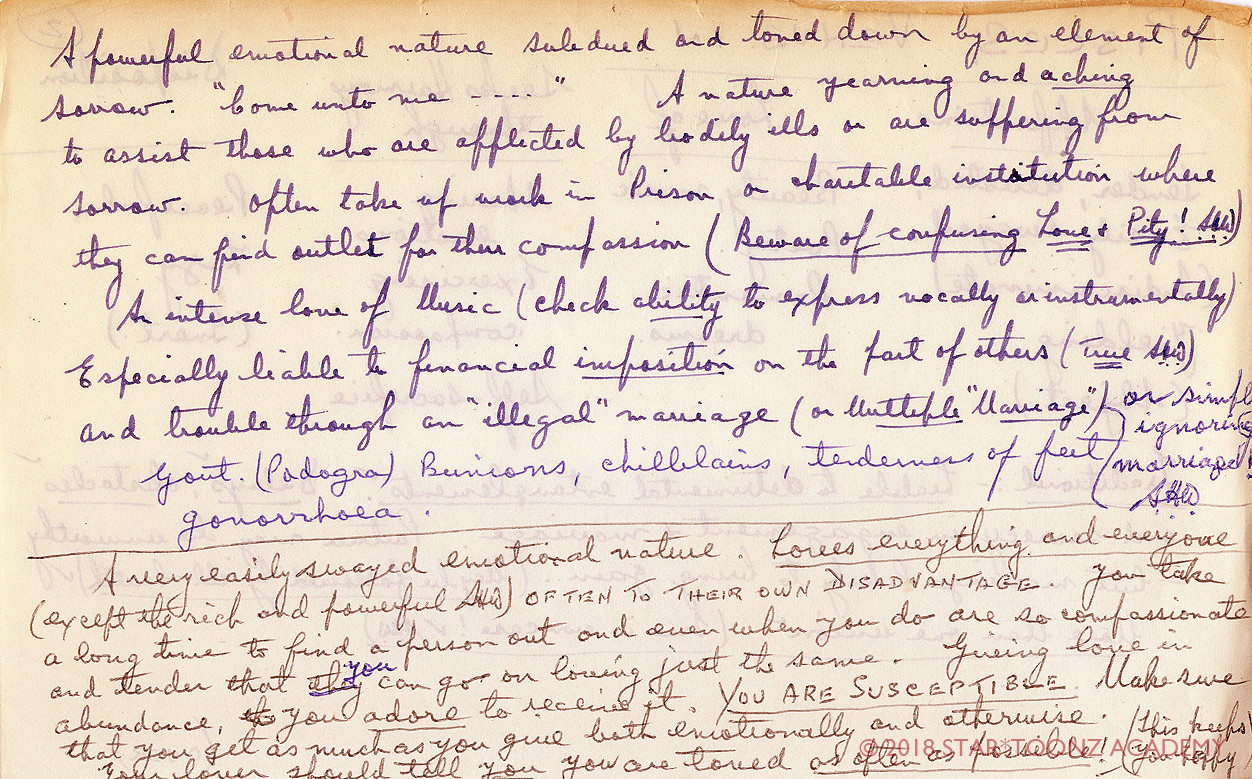 A powerful emotional nature subdued and toned down by an element of
sorrow. "Come unto me ----." A nature yearning and aching
to assist those who are afflicted by bodily ills or are suffering from
sorrow. Often take up work in Prison or charitable institution where
they can find outlet for their compassion (Beware of confusing Love & Pity!
An intense love of Music (check ability to express vocally or instrumentally)
Especially liable to financial imposition on the part of others (True
and trouble through an "illegal" marriage (or Multiple "Marriage") or simply
ignoring
Gout. (Podogra) Bunions, chilblains, tenderness of feet marriage
gonorrhoea.
A very easily swayed emotional nature Loves everything and everyone
(except the rich and powerful OFTEN TO THEIR OWN DISADVANTAGE. You take
a long time to find a person out and even when you do are so compassionate
you
and tender that they can go on loving just the same. Giving love in
abundance, you adore to receive it. YOU ARE SUSCEPTIBLE. Make sure
that you get as much as you give both emotionally and otherwise. (this keeps
Your lover should tell you you are loved as often as possible! (you happy
©2018 STAR*TOONZ ACADEMY